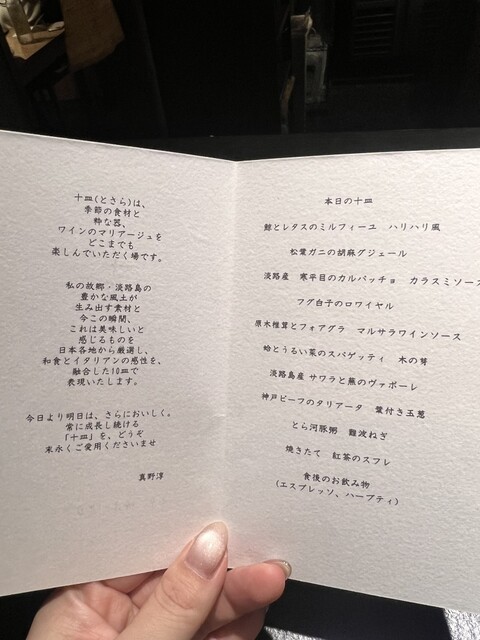 十皿(とさら)は、
季節の食材と
粋な器、
ワインのマリアージュを
どこまでも
楽しんでいただく場です。
私の故郷・淡路島の
豊かな風土が
生み出す素材と
今この瞬間、
これは美味しいと
感じるものを
日本各地から厳選し、
和食とイタリアンの感性を、
融合した10皿で
表現いたします。
今日より明日は、さらにおいしく。
常に成長し続ける
「十皿」を、どうぞ
末永くご愛用くださいませ
真野淳
本日の十皿
鯨とレタスのミルフィーユ ハリハリ風
松葉ガニの胡麻グジェール
淡路産 寒平目のカルパッチョ カラスミソース
フグ白子のロワイヤル
原木椎茸とフォアグラ マルサラワインソース
蛤とうるい菜のスパゲッティ 木の芽
淡路島産 サワラと蕪のヴァポーレ
神戸ビーフのタリアータ 葉付き玉葱
とら河豚粥 難波ねぎ
焼きたて 紅茶のスフレ
食後のお飲み物
(エスプレッソ、ハーブティ)